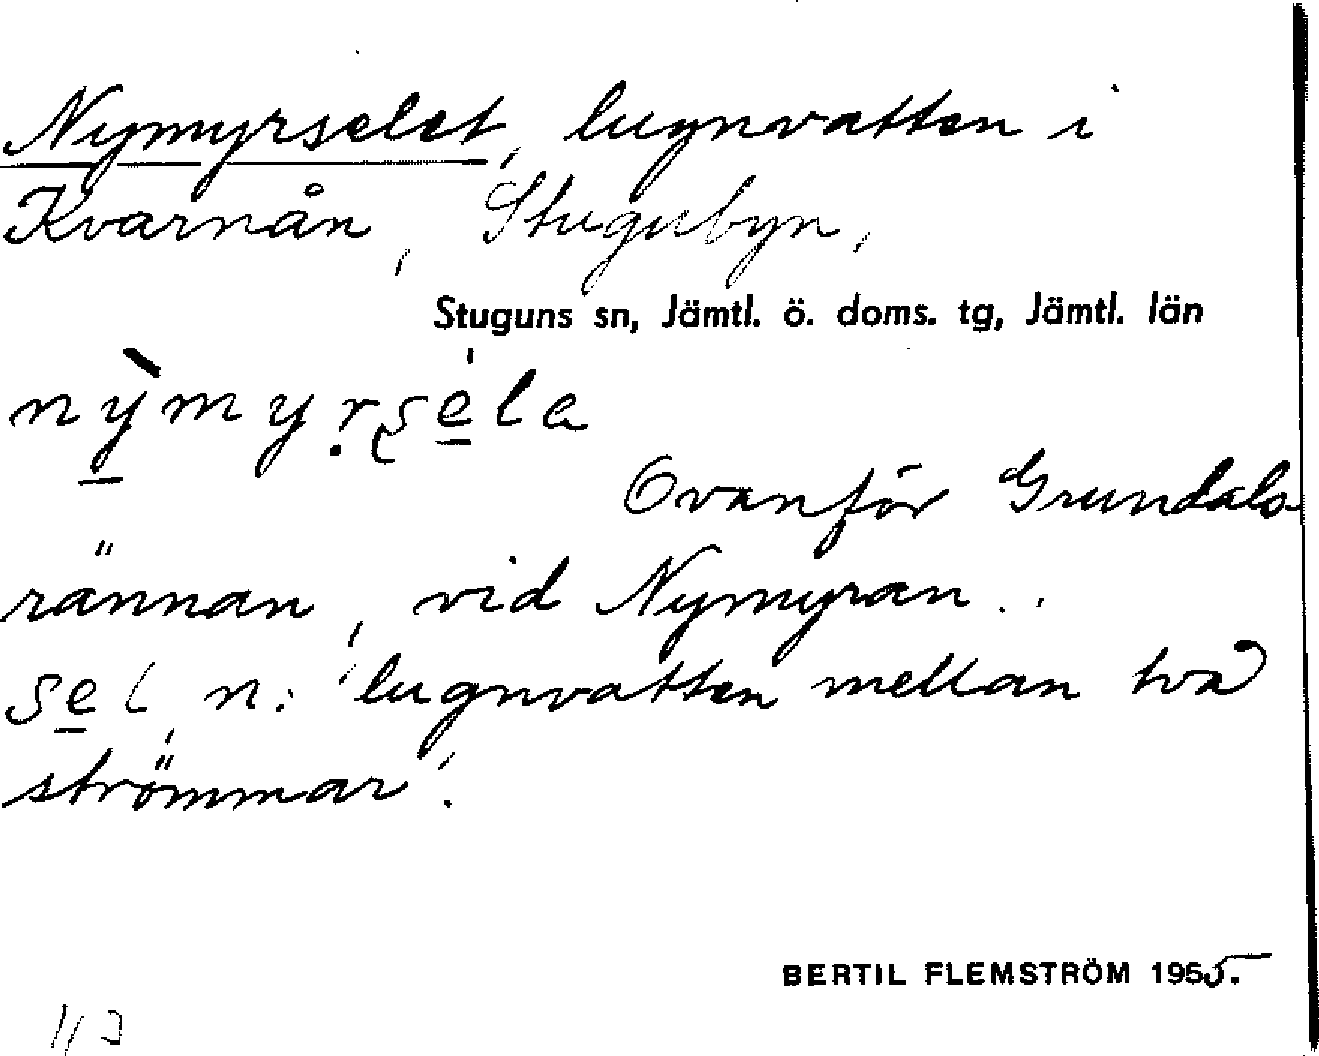 Nymyrselet, lugnvatten i
Kvarnån, Stugubyn,
Stuguns sn, Jämtl. ö. doms. tg, Jämtl. län
nỳmyrséla
Ovanför Grundals-
rännan, vid Nymyran.
sel, n.: 'lugnvatten mellan två
strömmar'.
BERTIL FLEMSTRÖM 1965.